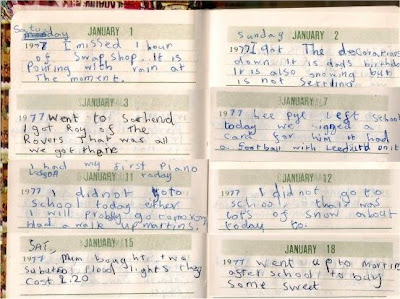 JANUARY 1
Saturday
1977 I missed 1 hour
of Swap Shop. It is
Pouring with rain at
The moment.
JANUARY 3
1977 Went to Southend
I got Roy of The
Rovers That was all
we got there
I had my first Piano
Lesson today
1977 I did not goto
School today either
I will probly go tomorrow
Had a walk up martins.
JANUARY 15
SAT,
1977 Mum bought two
subuteo flood lights they
Cost 2.20
Sunday JANUARY 2
1977 I got The decorations
down it is dads birthday
It is also snowing but
is not settling
JANUARY 7
1977 Lee Pye Left School
today we signed a
card for him it had
a football with Leedsutd on it
JANUARY 12
1977 I did not go to
school thair was
lots of snow about
today to.
JANUARY 18
1977 went up to Martins
after school to buy
some sweet